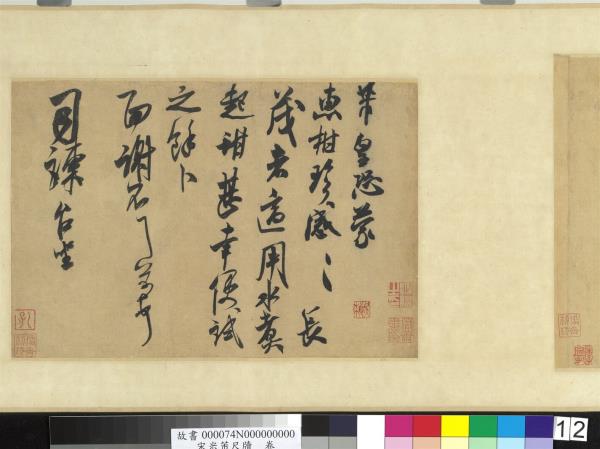 芾皇恐蒙
惠柑珍感〻長
茂者適用水煮
起甜甚幸便試
之餘卜
面謝不一一芾頓首
司諫台坐
故書 000074N000000000
宋米芾尺牘 卷
12